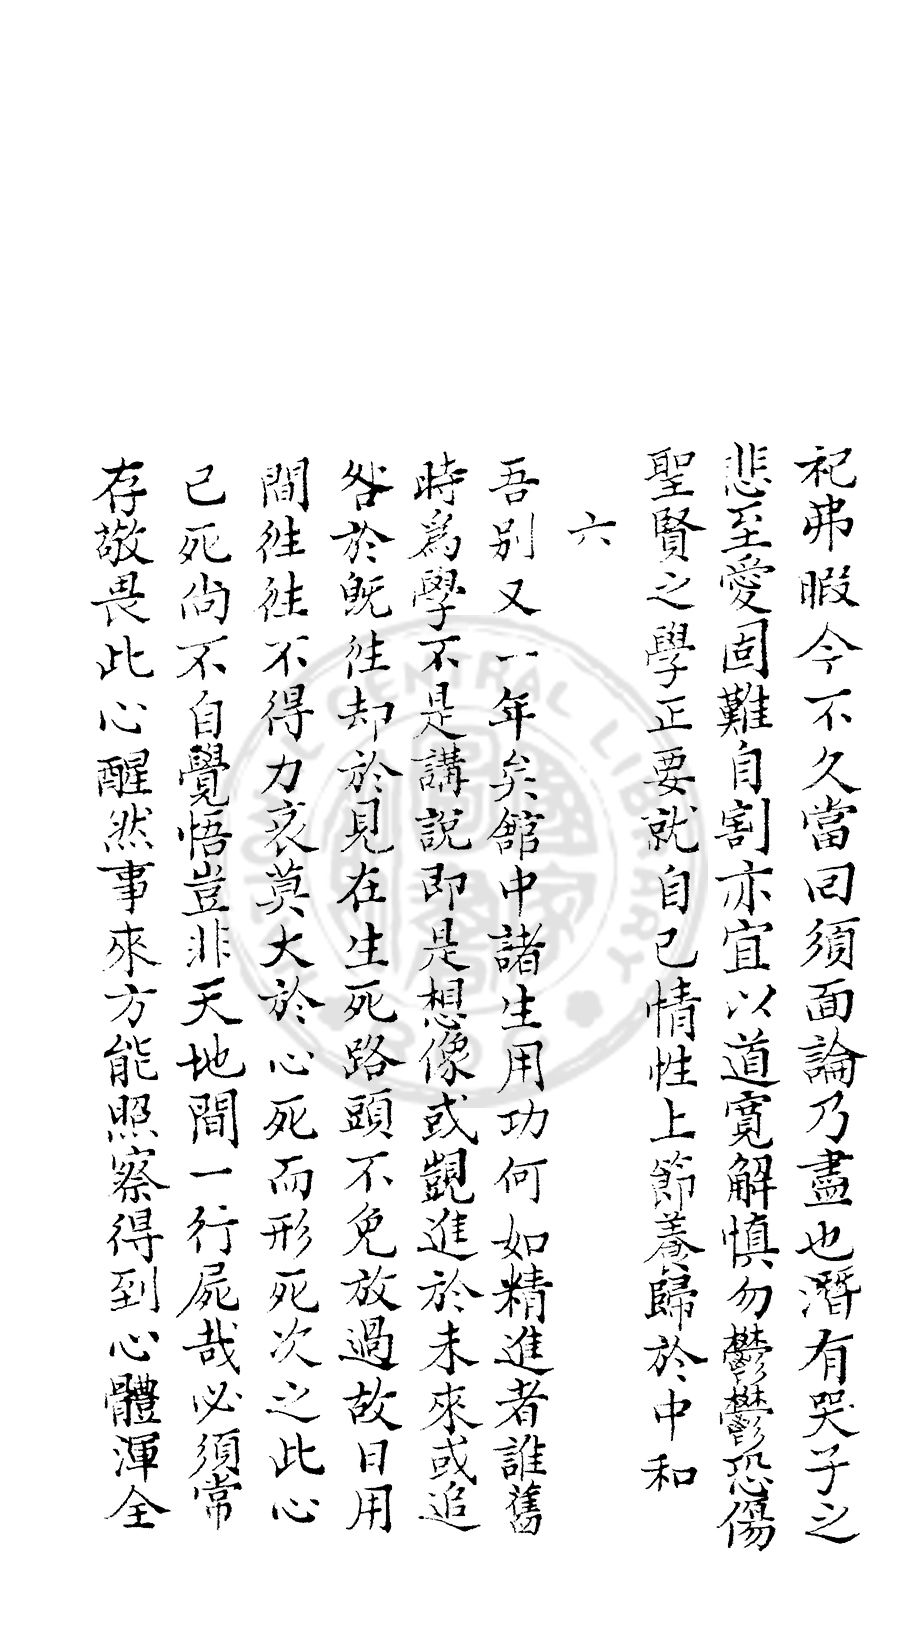 祀弗暇今不久當回須面論乃盡也潛有哭子之
悲至愛固難自割亦宜以道寬解慎勿鬱鬱恐傷
聖賢之學正要就自己情性上節養歸於中和
六
吾別又一年矣館中諸生用功何如精進者誰舊
時為學不是講說即是想像或覬進於未來或追
咎於既徃却於見在生死路頭不免放過故日用
間徃徃不得力哀莫大於心死而形死次之此心
已死尚不自覺悟豈非天地間一行屍哉必須常
存敬畏此心醒然事來方能照察得到心體渾全
NATIONAL CENTRAL LIBRARY